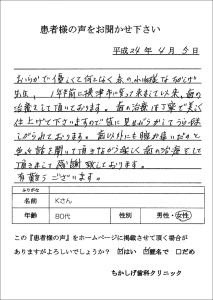 患者様の声をお聞かせ下さい
平成24年4月今日
おらかで優しくて何となく
出
1年半前に摂津市に戻って来ました以来、歯の
治療をして頂いております。歯の治療は丁寧で美しく
仕上げて下さいますので皆に見せながらとてもうれ
しがられております。歯以外にも腰が痛いだのと
色々話を聞いて頂きながら楽しく歯の治療をして
頂きまして感謝致しております。
有難うございます。
ふりがな
名前 Kさん
年齢 80代 性別 男性・女性
この『患者様の声』をホームページに掲載させて頂く場合が
ありますがよろしいでしょうか? ☑はい ☑匿名で □だめ
ちかしげ歯科クリニック